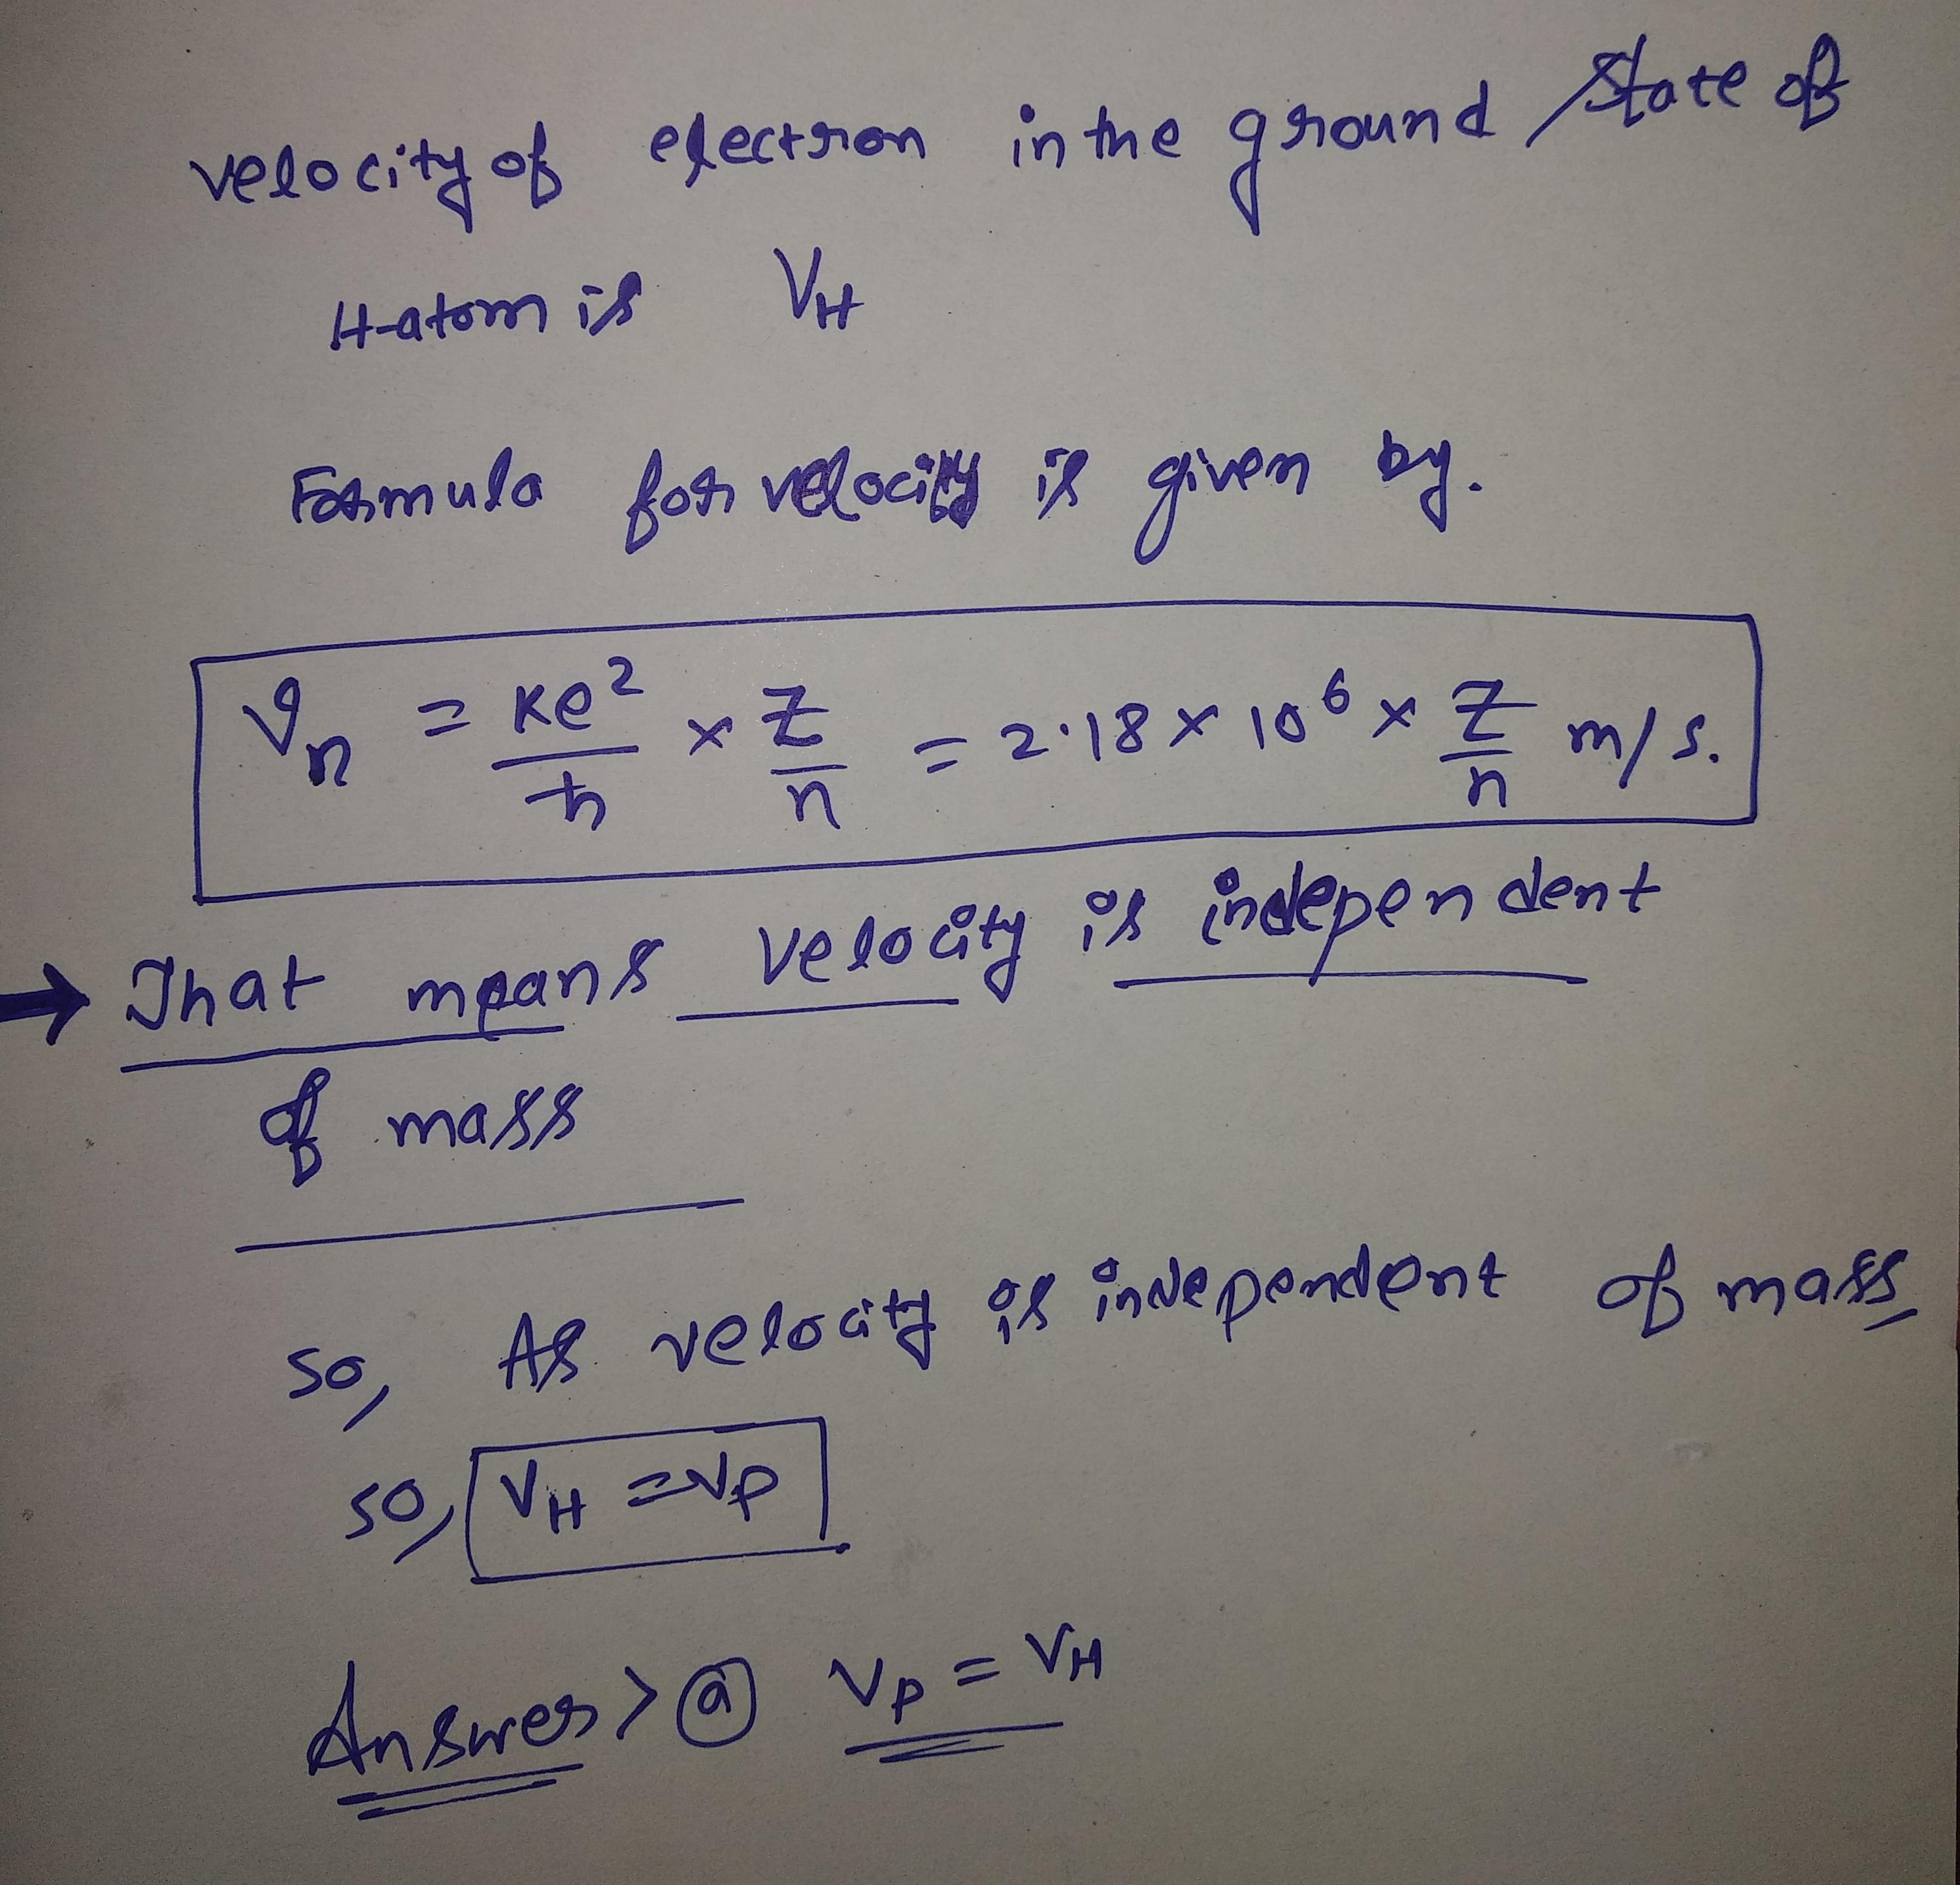 velocity of electron in the ground state of
H-atom is V_H
Formula for velocity is given by.
v_n = Ke²/ħ × Z/n = 2.18 × 10⁶ × Z/n m/s.
→ That means velocity is independent
of mass
so, As velocity is independent of mass
so, V_H = V_P
Answer > ⓐ V_P = V_H